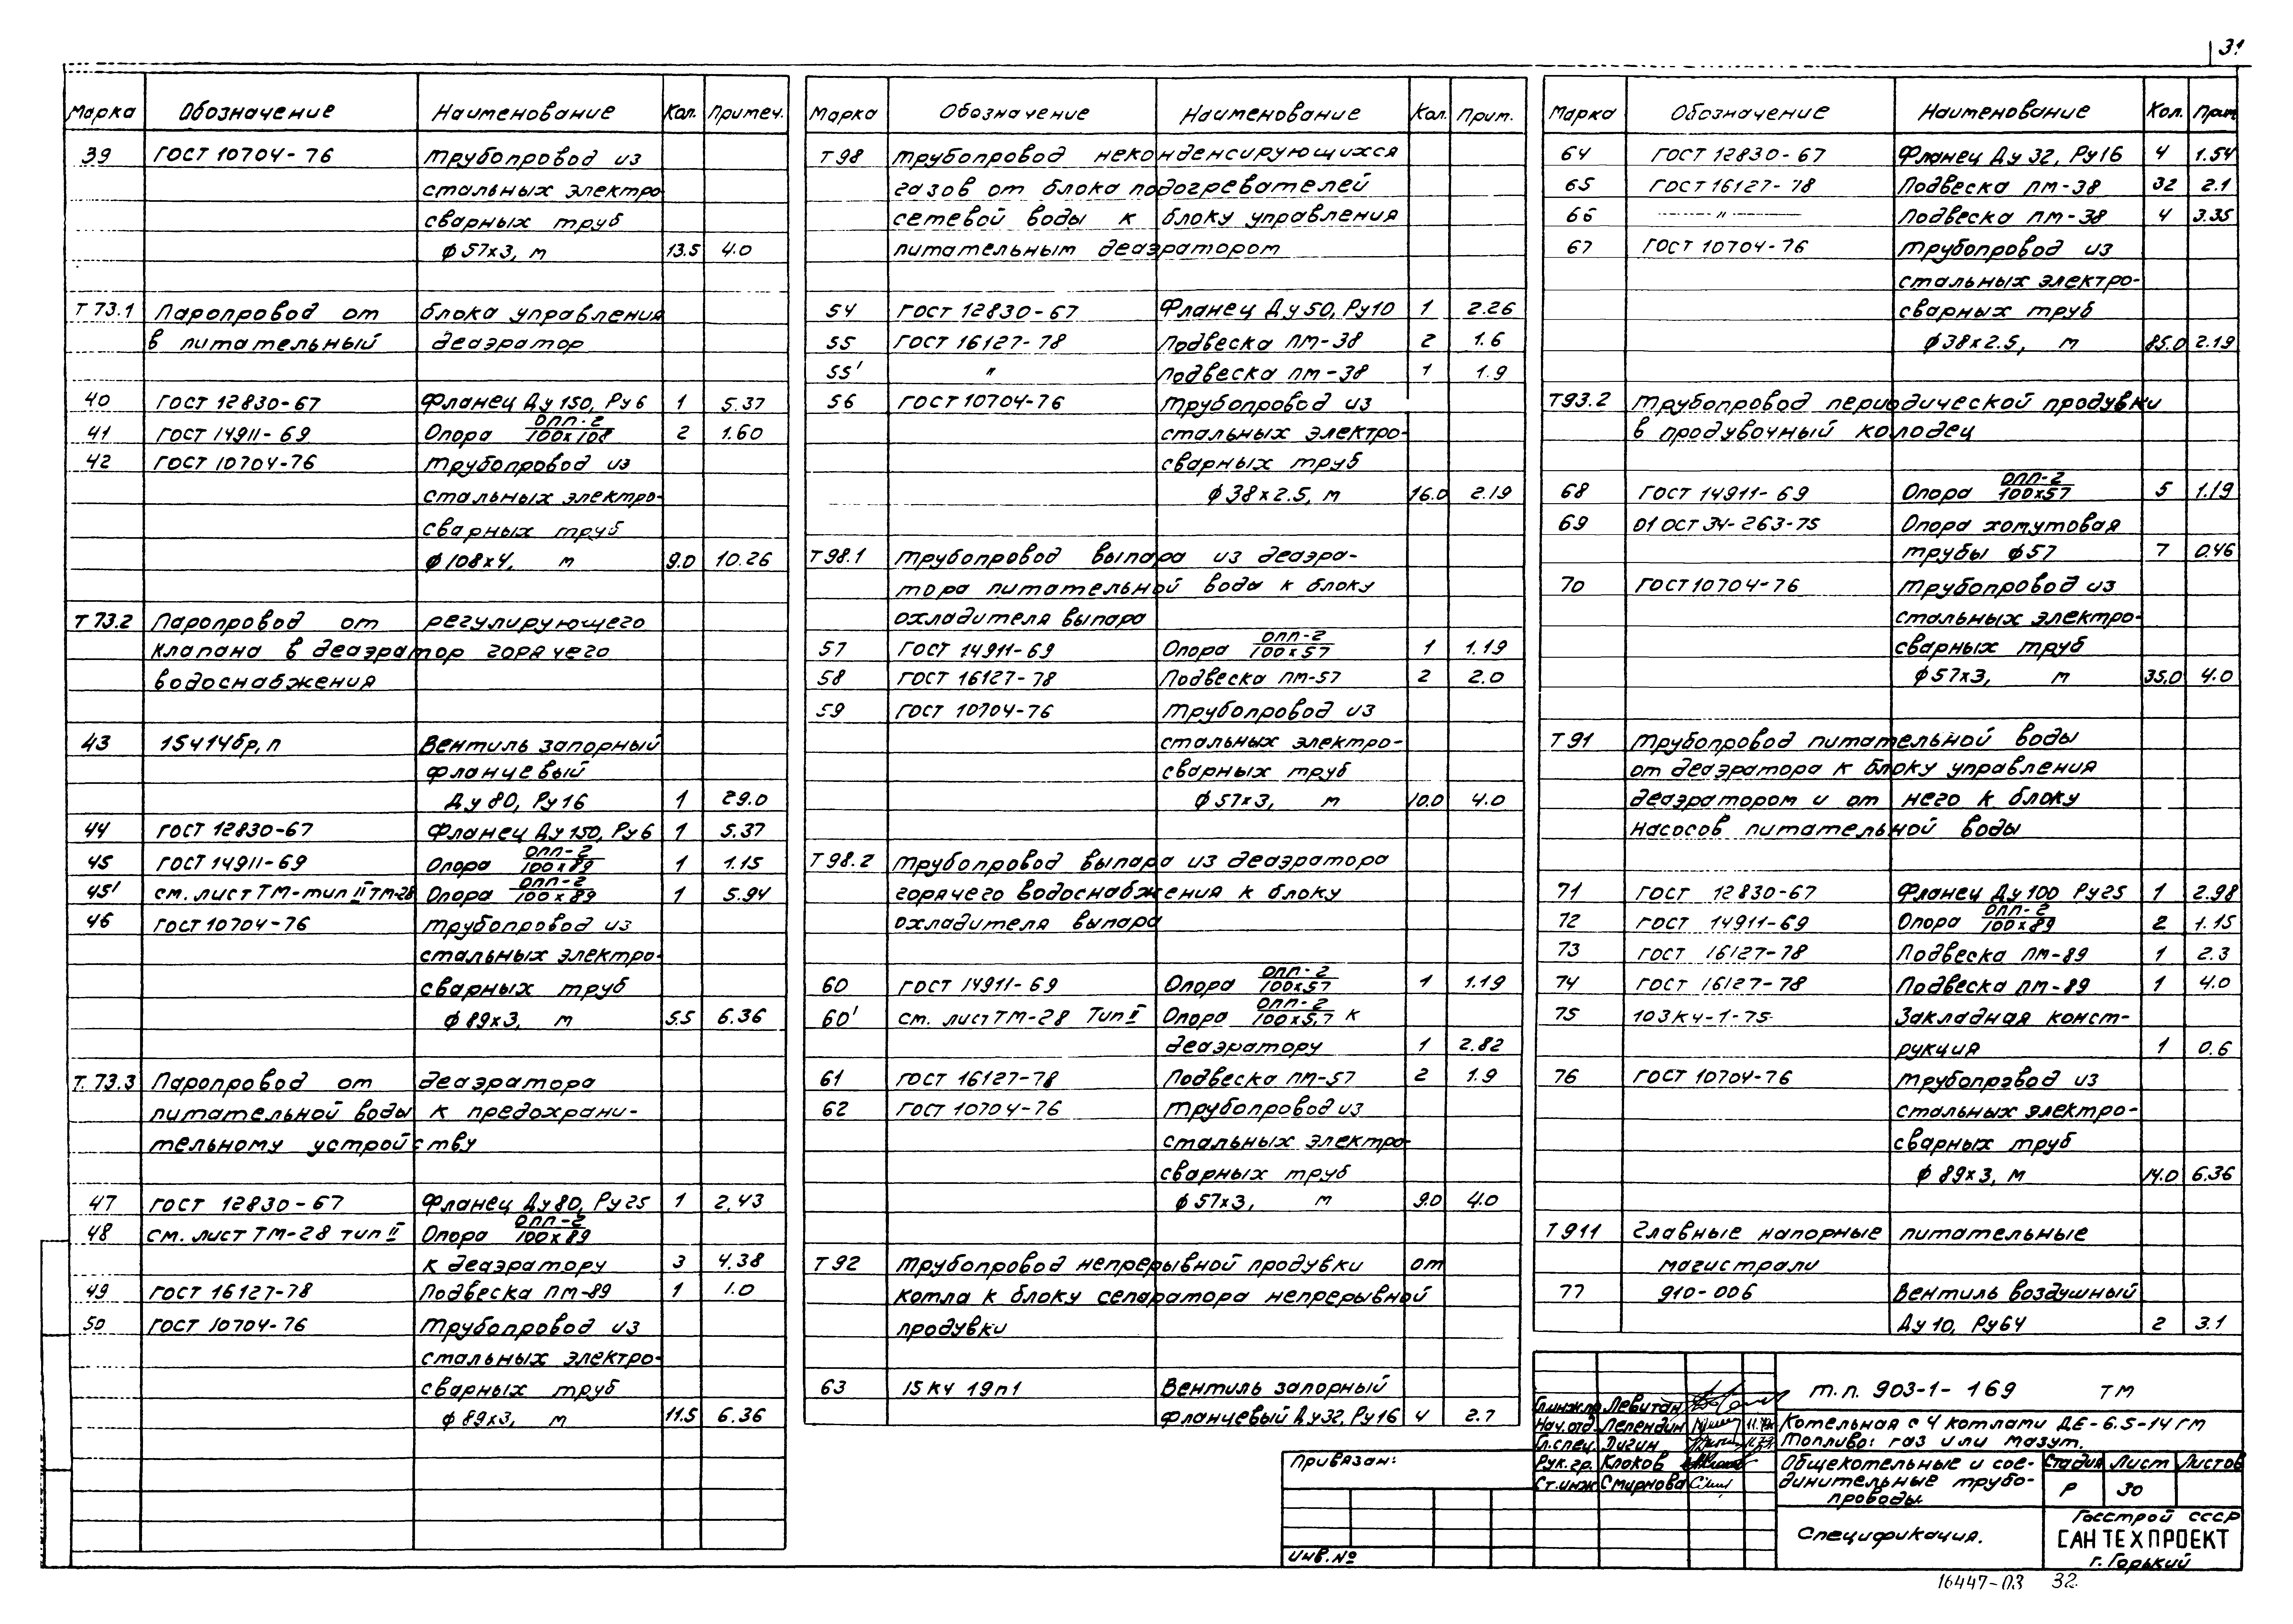 31
Марка Обозначение Наименование Кол. Примеч.
39 ГОСТ 10704-76 Трубопровод из
стальных электро-
сварных труб
ф57х3, м 13.5 4.0
Т 73.1 Паропровод от блока управления
в питательный деаэратор
40 ГОСТ 12830-67 Фланец Ду 150, Ру 6 1 5.37
41 ГОСТ 14911-69 Опора ОПП-2/100х108 2 1.60
42 ГОСТ 10704-76 Трубопровод из
стальных электро-
сварных труб
ф108х4, м 9.0 10.26
Т 73.2 Паропровод от регулирующего
клапана в деаэратор горячего
водоснабжения
43 15ч14бр, п Вентиль запорный
фланцевый
Ду 80, Ру 16 1 29.0
44 ГОСТ 12830-67 Фланец Ду 150, Ру 6 1 5.37
45 ГОСТ 14911-69 Опора ОПП-2/100х89 1 1.15
45' см. лист ТМ-тип II ТМ-28 Опора ОПП-2/100х89 1 5.94
46 ГОСТ 10704-76 Трубопровод из
стальных электро-
сварных труб
ф89х3, м 5.5 6.36
Т. 73.3 Паропровод от деаэратора
питательной воды к предохрани-
тельному устройству
47 ГОСТ 12830-67 Фланец Ду 80, Ру 25 1 2.43
48 см. лист ТМ-28 тип II Опора ОПП-2/100х89
к деаэратору 3 4.38
49 ГОСТ 16127-78 Подвеска ПМ-89 1 1.0
50 ГОСТ 10704-76 Трубопровод из
стальных электро-
сварных труб
ф89х3, м 11.5 6.36
Марка Обозначение Наименование Кол. Прим.
Т 98 Трубопровод неконденсирующихся
газов от блока подогревателей
сетевой воды к блоку управления
питательным деаэратором
54 ГОСТ 12830-67 Фланец Ду 50, Ру10 1 2.26
55 ГОСТ 16127-78 Подвеска ПМ-38 2 1.6
55' " Подвеска ПМ-38 1 1.9
56 ГОСТ 10704-76 Трубопровод из
стальных электро-
сварных труб
ф38х2.5, м 16.0 2.19
Т 98.1 Трубопровод выпара из деаэра-
тора питательной воды к блоку
охладителя выпара
57 ГОСТ 14911-69 Опора ОПП-2/100х57 1 1.19
58 ГОСТ 16127-78 Подвеска ПМ-57 2 2.0
59 ГОСТ 10704-76 Трубопровод из
стальных электро-
сварных труб
ф57х3, м 10.0 4.0
Т 98.2 Трубопровод выпара из деаэратора
горячего водоснабжения к блоку
охладителя выпара
60 ГОСТ 14911-69 Опора ОПП-2/100х57 1 1.19
60' см. лист ТМ-28 Тип II Опора ОПП-2/100х5,7 к
деаэратору 1 2.82
61 ГОСТ 16127-78 Подвеска ПМ-57 2 1.9
62 ГОСТ 10704-76 Трубопровод из
стальных электро-
сварных труб
ф57х3, м 9.0 4.0
Т 92 Трубопровод непрерывной продувки от
котла к блоку сепаратора непрерывной
продувки
63 15кч 19п1 Вентиль запорный
фланцевый Ду32, Ру16 4 2.7
Марка Обозначение Наименование Кол. Прим
64 ГОСТ 12830-67 Фланец Ду 32, Ру16 4 1.54
65 ГОСТ 16127-78 Подвеска ПМ-38 32 2.1
66 " Подвеска ПМ-38 4 3.35
67 ГОСТ 10704-76 Трубопровод из
стальных электро-
сварных труб
ф38х2.5, м 85.0 2.19
Т93.2 Трубопровод периодической продувки
в продувочный колодец
68 ГОСТ 14911-69 Опора ОПП-2/100х57 5 1.19
69 01 ОСТ 34-263-75 Опора хомутовая
трубы ф57 7 0.46
70 ГОСТ 10704-76 Трубопровод из
стальных электро-
сварных труб
ф57х3, м 35.0 4.0
Т 91 Трубопровод питательной воды
от деаэратора к блоку управления
деаэратором и от него к блоку
насосов питательной воды
71 ГОСТ 12830-67 Фланец Ду 100 Ру25 1 2.98
72 ГОСТ 14911-69 Опора ОПП-2/100х89 2 1.15
73 ГОСТ 16127-78 Подвеска ПМ-89 1 2.3
74 ГОСТ 16127-78 Подвеска ПМ-89 1 4.0
75 103К4-1-75 Закладная конст-
рукция 1 0.6
76 ГОСТ 10704-76 Трубопровод из
стальных электро-
сварных труб
ф89х3, м 14.0 6.36
Т 911 Главные напорные питательные
магистрали
77 910-006 Вентиль воздушный
Ду 10, Ру64 2 3.1
Гл.инж.пр Левитан
Нач.отд. Лепендин
Гл.спец. Дигин
Рук.гр. Клоков
Ст.инж Смирнова
Привязан:
Инв.№
т.п. 903-1-169 ТМ
Котельная с 4 котлами ДЕ-6.5-14 ГМ
Топливо: газ или мазут.
Общекотельные и сое-
динительные трубо-
проводы.
Стадия Лист Листов
Р 30
Спецификация.
Госстрой СССР
САНТЕХПРОЕКТ
г. Горький
16447-03 32